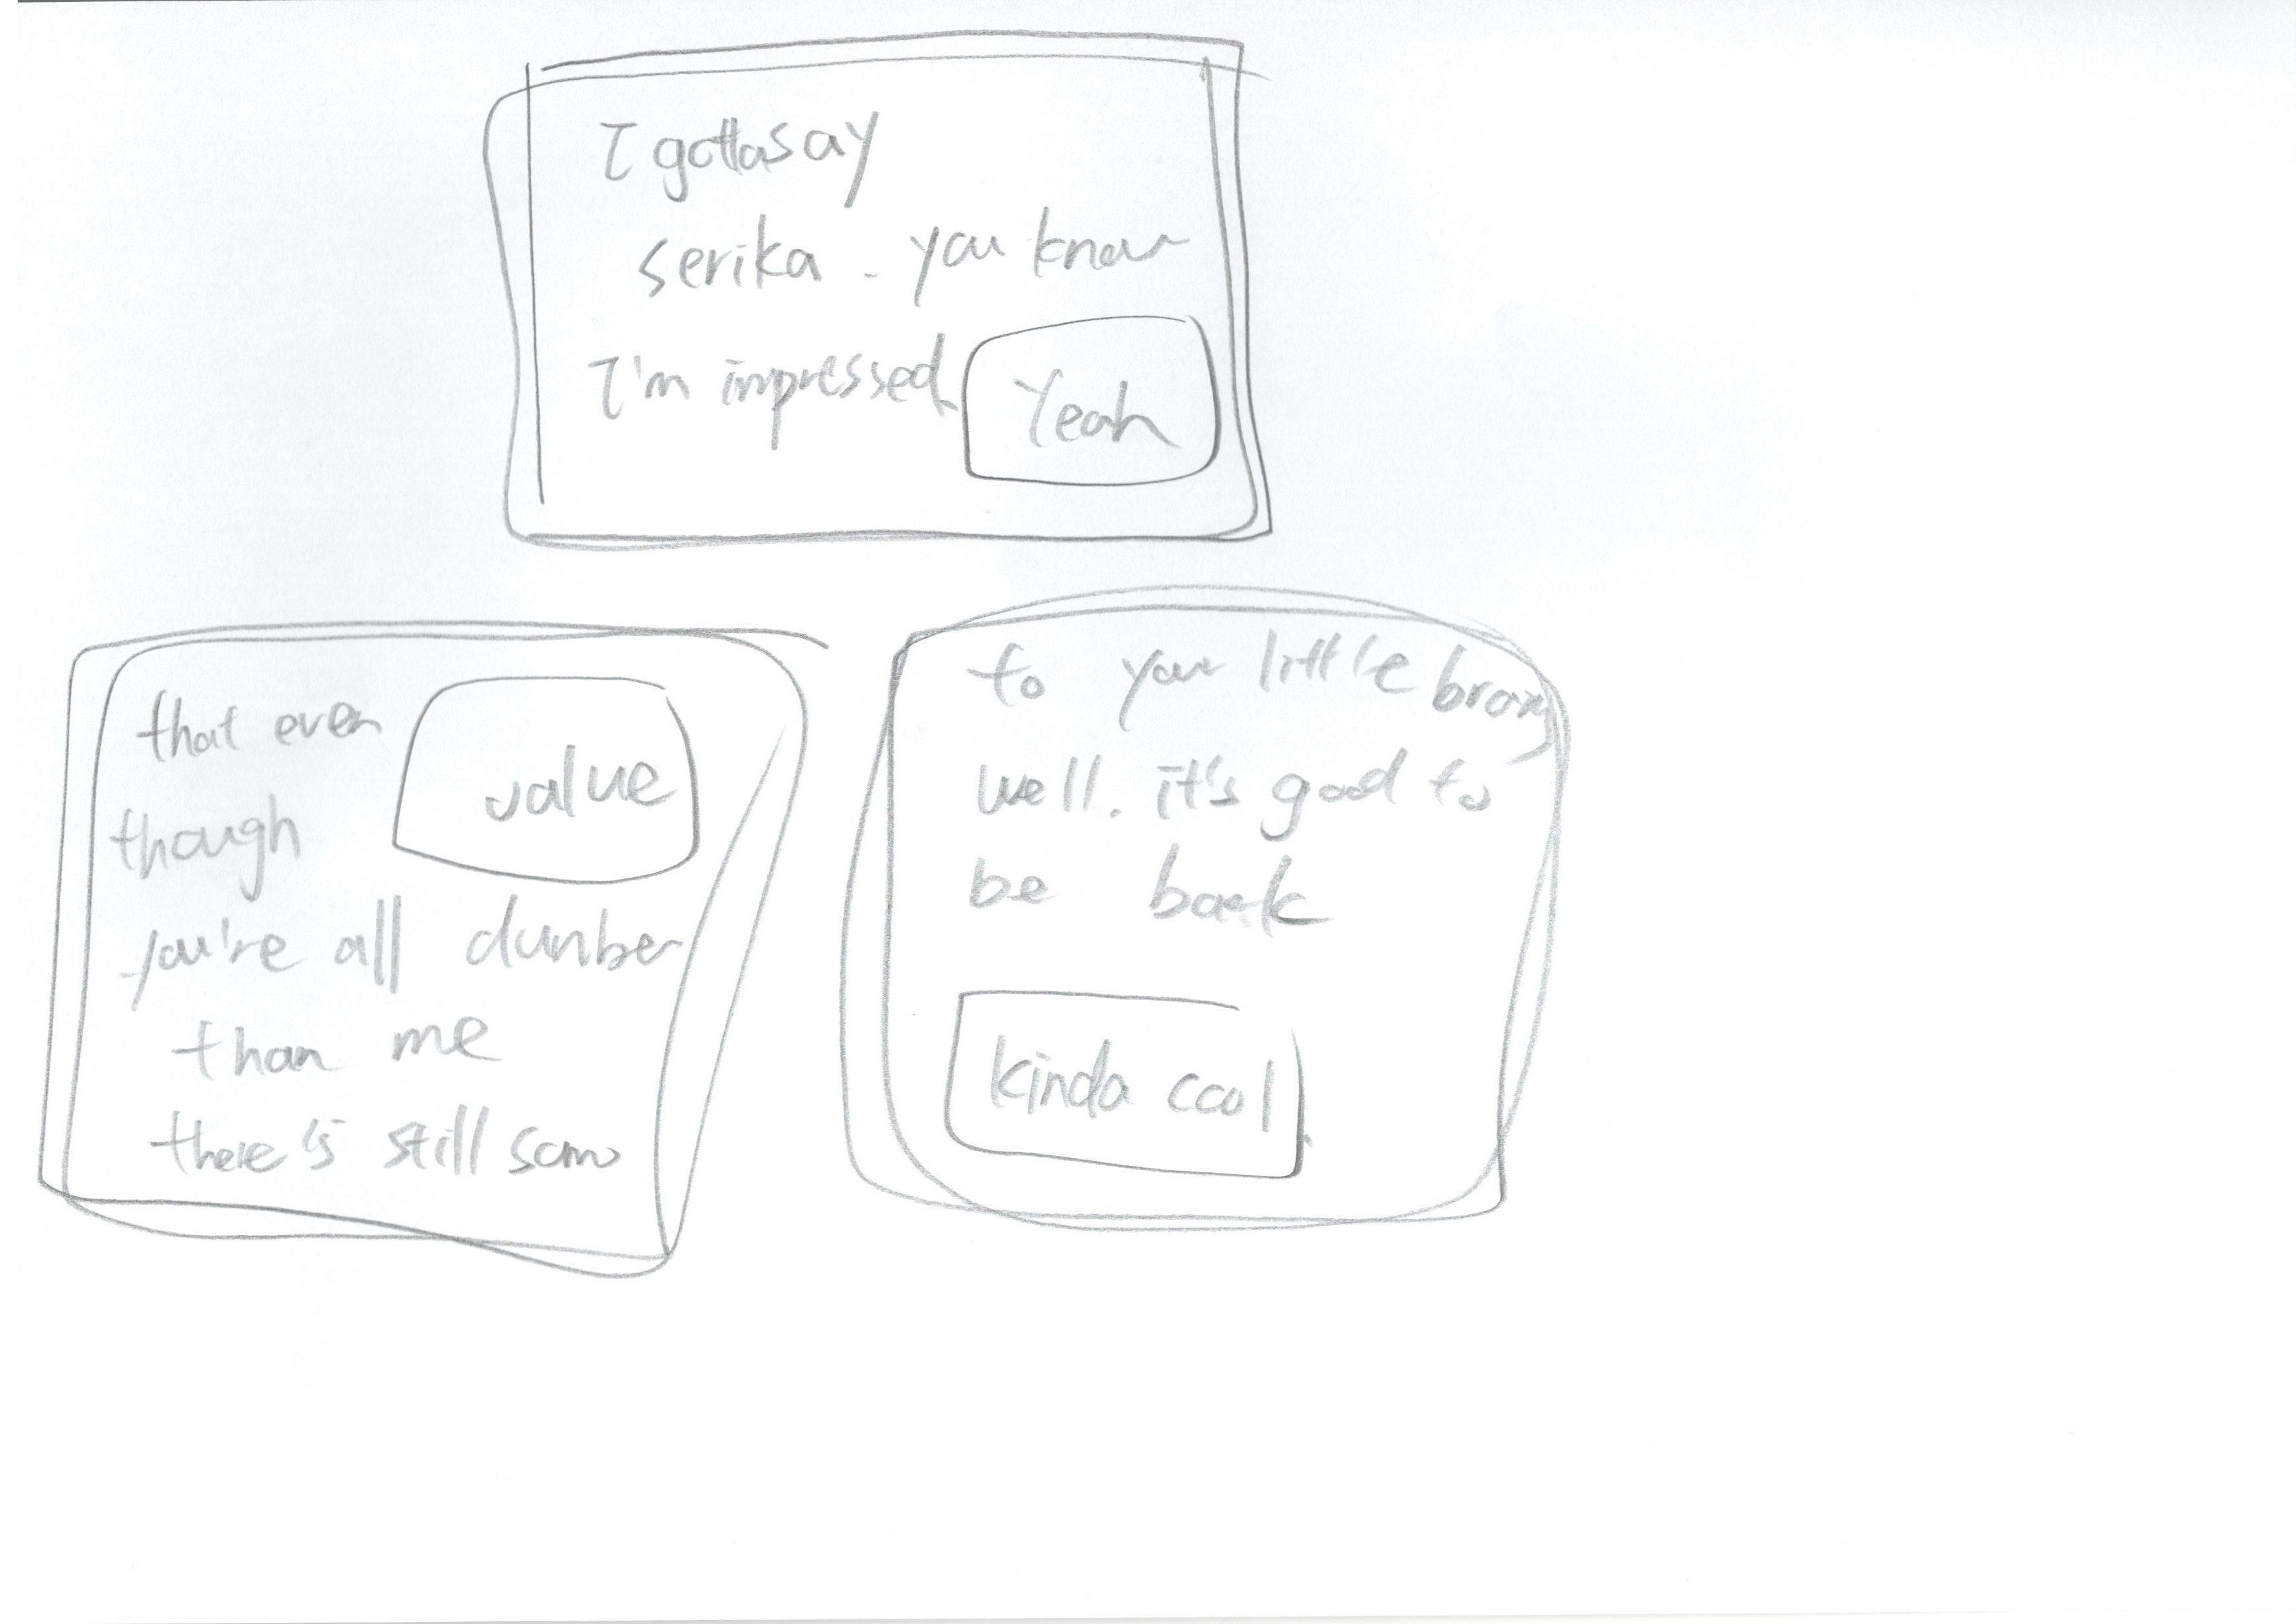 I gotta say
serika. you know
I'm impressed
Yeah
that even
though
value
you're all dumber
than me
there's still some
to your little
well. it's good to
be back
kinda cool.